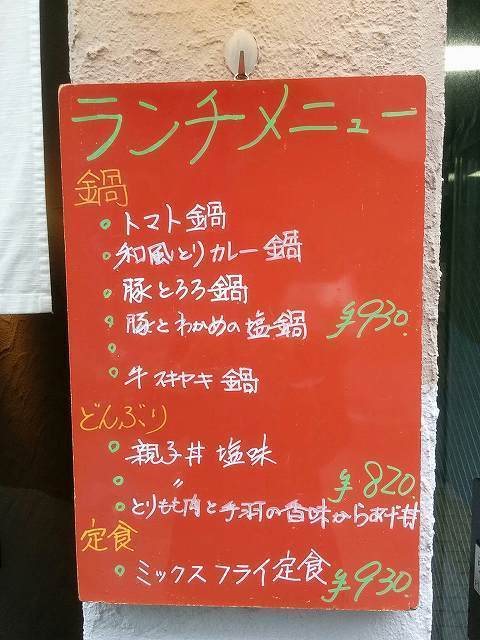 ランチメニュー
鍋
トマト鍋
和風とりカレー鍋
豚とろろ鍋
豚とわかめの塩鍋 ¥930
牛スキヤキ鍋
どんぶり
親子丼 塩味
〃 ¥820
とりもも肉と手羽の香味からあげ丼
定食
ミックスフライ定食 ¥930